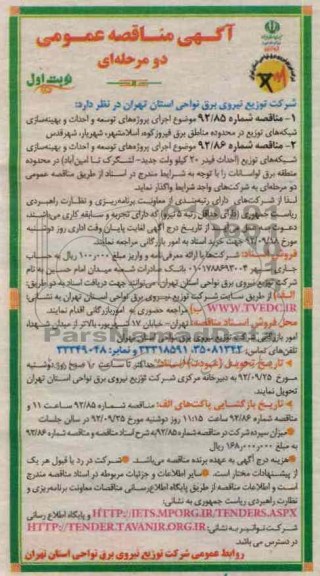 آگهی مناقصه عمومی
دو مرحله‌ای
نوبت اول
شرکت توزیع نیروی برق نواحی استان تهران در نظر دارد:
۱- مناقصه شماره ۹۲/۸۵ موضوع اجرای پروژه‌های توسعه و احداث و بهینه‌سازی
شبکه‌های توزیع در محدوده مناطق برق فیروزکوه، اسلامشهر، شهریار، شهرقدس
۲- مناقصه شماره ۹۲/۸۶ موضوع اجرای پروژه‌های توسعه و احداث و بهینه‌سازی
شبکه‌های توزیع (احداث فیدر ۲۰ کیلو ولت جدید- لشگرک تا امین‌آباد) در محدوده
منطقه برق لواسانات را با توجه به شرایط مندرج در اسناد از طریق مناقصه عمومی
دو مرحله‌ای به شرکت‌های واجد شرایط واگذار نماید.
لذا از شرکت‌های دارای رتبه‌بندی از معاونت برنامه‌ریزی و نظارت راهبردی
ریاست جمهوری (دارای حداقل رتبه ۵ نیرو) که دارای تجربه و سابقه کاری می‌باشند
دعوت از تاریخ درج آگهی لغایت پایان وقت اداری روز دوشنبه
مورخ ۹۲/۰۹/۱۸ جهت خرید اسناد به امور بازرگانی مراجعه نمایند.
فروش اسناد: شرکت‌ها با ارائه معرفی‌نامه و واریز مبلغ ۱۰۰٫۰۰۰ ریال به حساب
جاری سپهر ۰۱۰۱۷۸۸۹۳۰۰۴ بانک صادرات شعبه میدان امام حسین به نام
شرکت توزیع نیروی برق نواحی استان تهران، می‌توانند جهت دریافت اسناد به دو طریق:
الف) از طریق سایت شرکت توزیع نیروی برق نواحی استان تهران به نشانی:
WWW.TVEDC.IR ب) مراجعه حضوری به امور بازرگانی اقدام نمایند.
محل فروش اسناد مناقصه: تهران- خیابان ۱۷ شهریور، بالاتر از میدان شهدا،
امور بازرگانی شرکت توزیع نیروی برق نواحی استان تهران
تلفن‌های تماس: ۳۵۰۸۱۳۴۴، ۳۳۳۱۸۵۹۱ و نمابر: ۳۳۳۴۹۰۴۸
تاریخ تحویل (عودت) اسناد: حداکثر تا ساعت ۱۰ صبح روز دوشنبه
مورخ ۹۲/۰۹/۲۵ به دبیرخانه مرکزی شرکت توزیع نیروی برق نواحی استان تهران
تحویل نمایند.
تاریخ بازگشایی پاکت‌های الف: مناقصه شماره ۹۲/۸۵ ساعت ۱۱ و
مناقصه شماره ۹۲/۸۶ ساعت ۱۱:۱۵ روز دوشنبه مورخ ۹۲/۰۹/۲۵ در سالن جلسات
میزان سپرده شرکت در مناقصه شماره ۹۲/۸۵ به شرح اسناد مناقصه و مناقصه شماره ۹۲/۸۶
به مبلغ ۱۶۸٫۰۰۰٫۰۰۰ ریال
هزینه درج آگهی به عهده برنده مناقصه می‌باشد. شرکت در رد یا قبول هر یک
از پیشنهادات مختار است سایر اطلاعات و جزئیات مربوطه در اسناد مناقصه مندرج
است و اطلاعات مناقصه از طریق پایگاه اطلاع‌رسانی مناقصات معاونت برنامه‌ریزی و
نظارت راهبردی ریاست جمهوری به نشانی:
HTTP://IETS.MPORG.IR/TENDERS.ASPX و پایگاه اطلاع رسانی
شرکت توانیر به نشانی: HTTP://TENDER.TAVANIR.ORG.IR
در دسترس می باشد.
روابط عمومی شرکت توزیع نیروی برق نواحی استان تهران